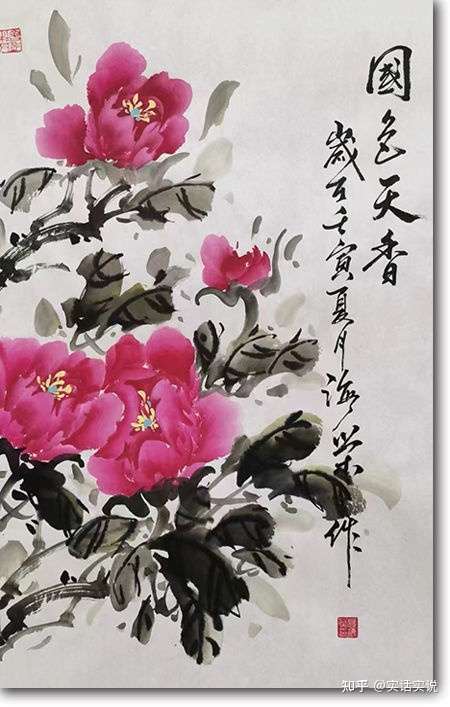 國色天香
歲在壬寅夏月海作
知乎 @实话实说